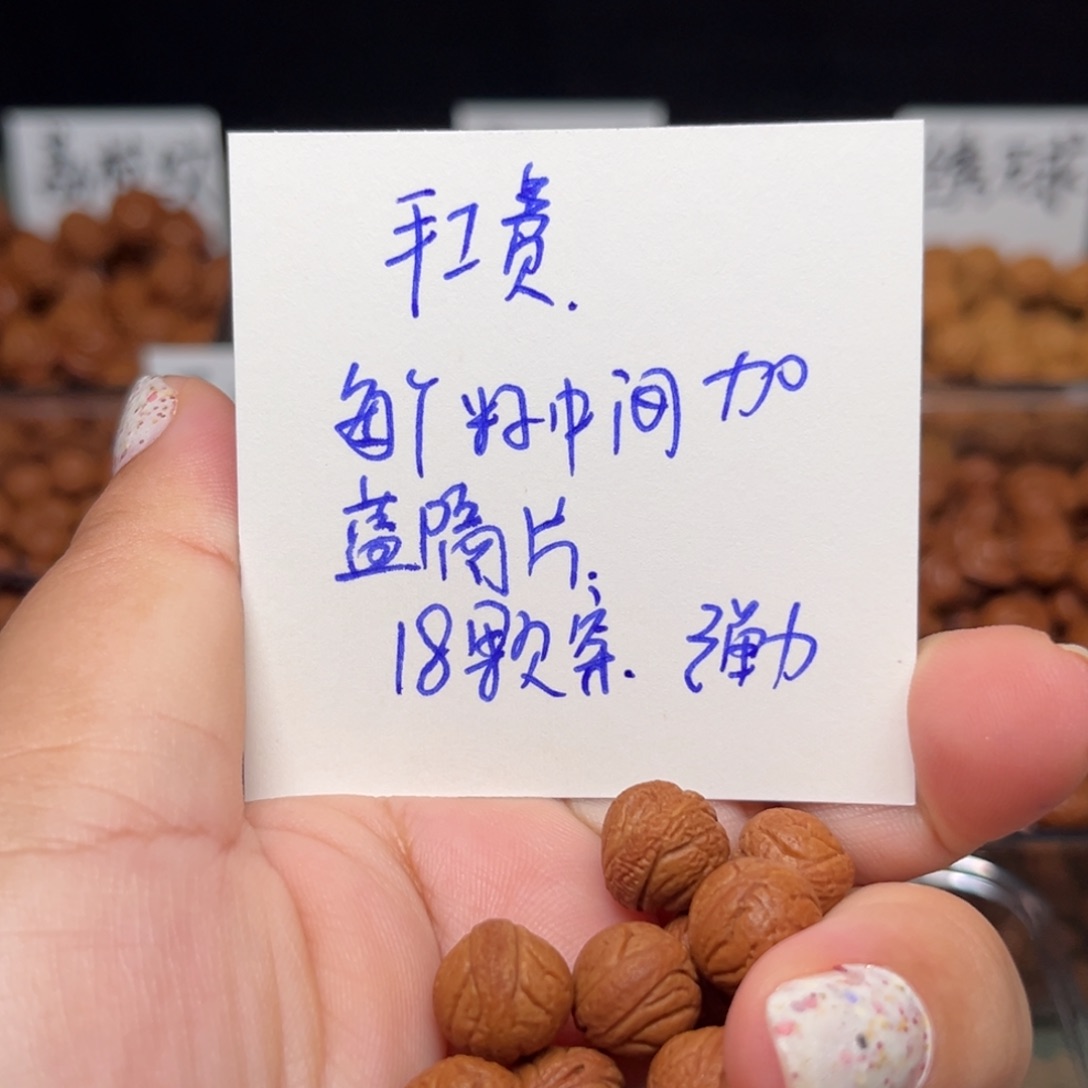 手工费.
每个籽中间加
蓝隔片;
18颗穿. 弹力
绣球